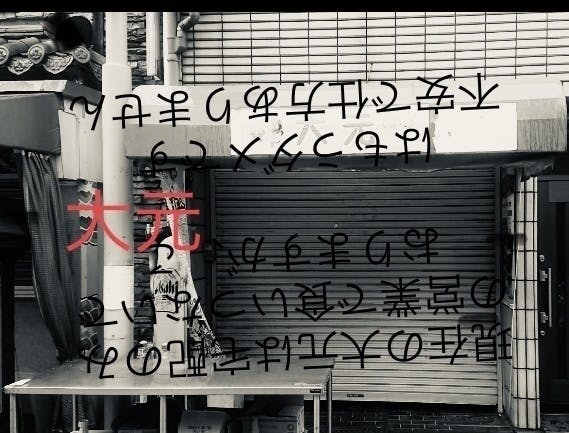 現在の大元は宅配のみ
の営業で食いつないで
おりますが
はもうダメです
不安で仕方ありません
大元
Asahi